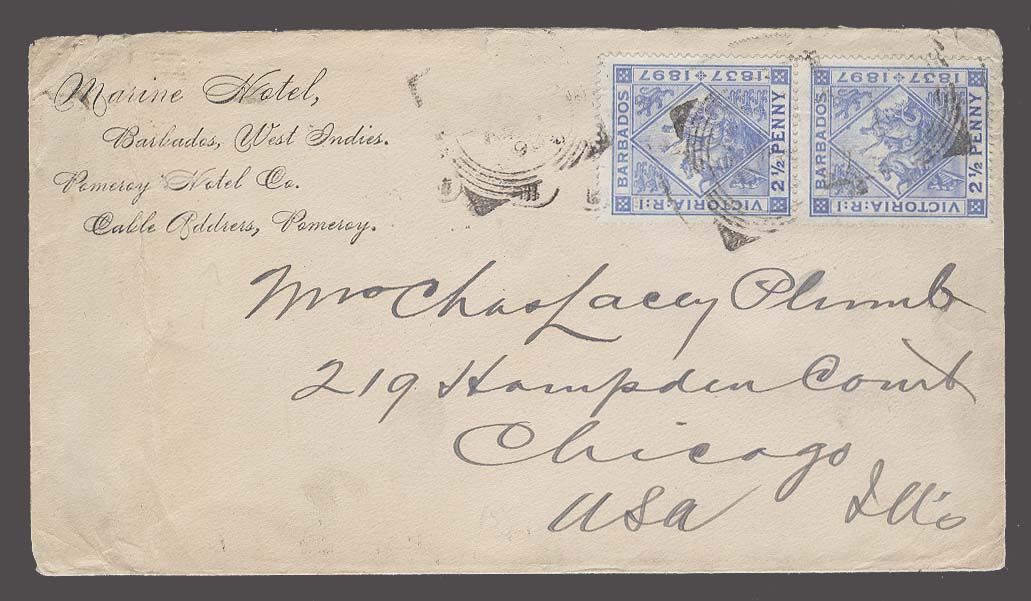 Marine Hotel,
Barbados, West Indies.
Pomeroy Hotel Co.
Cable Address, Pomeroy.
1837 1897
BARBADOS
2½ PENNY
VICTORIA:R:I
1837 1897
BARBADOS
2½ PENNY
VICTORIA:R:I
Mrs Chas Lacey Plumb
219 Hampden Court
Chicago
USA Ills